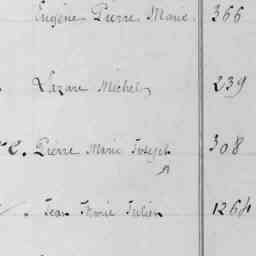 Eugène Pierre Marie 366
Lazare Michel 239
e. Pierre Marie Joseph 308
Jean Marie Julien 1264